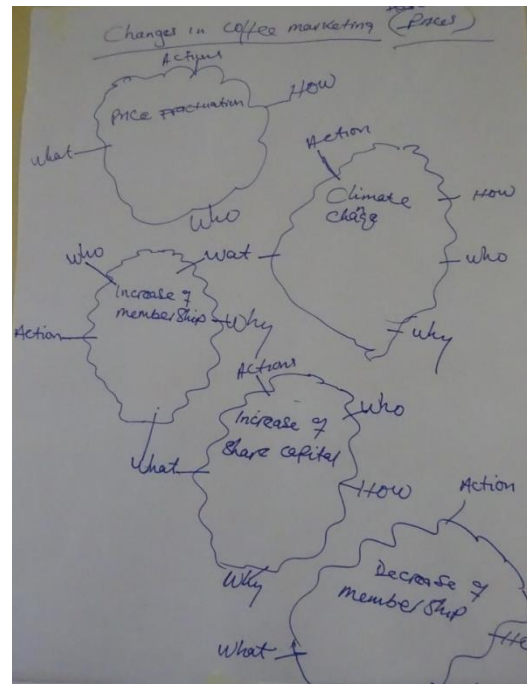 Changes in coffee marketing (Prices)
Actions
Price Fractuation
HOW
What
Who
Action
Climate
change
HOW
Who
Why
Who
Wat
Increase of
membership
Why
Action
What
Actions
Increase of
Share capital
Who
HOW
Why
Action
Decrease of
membership
What